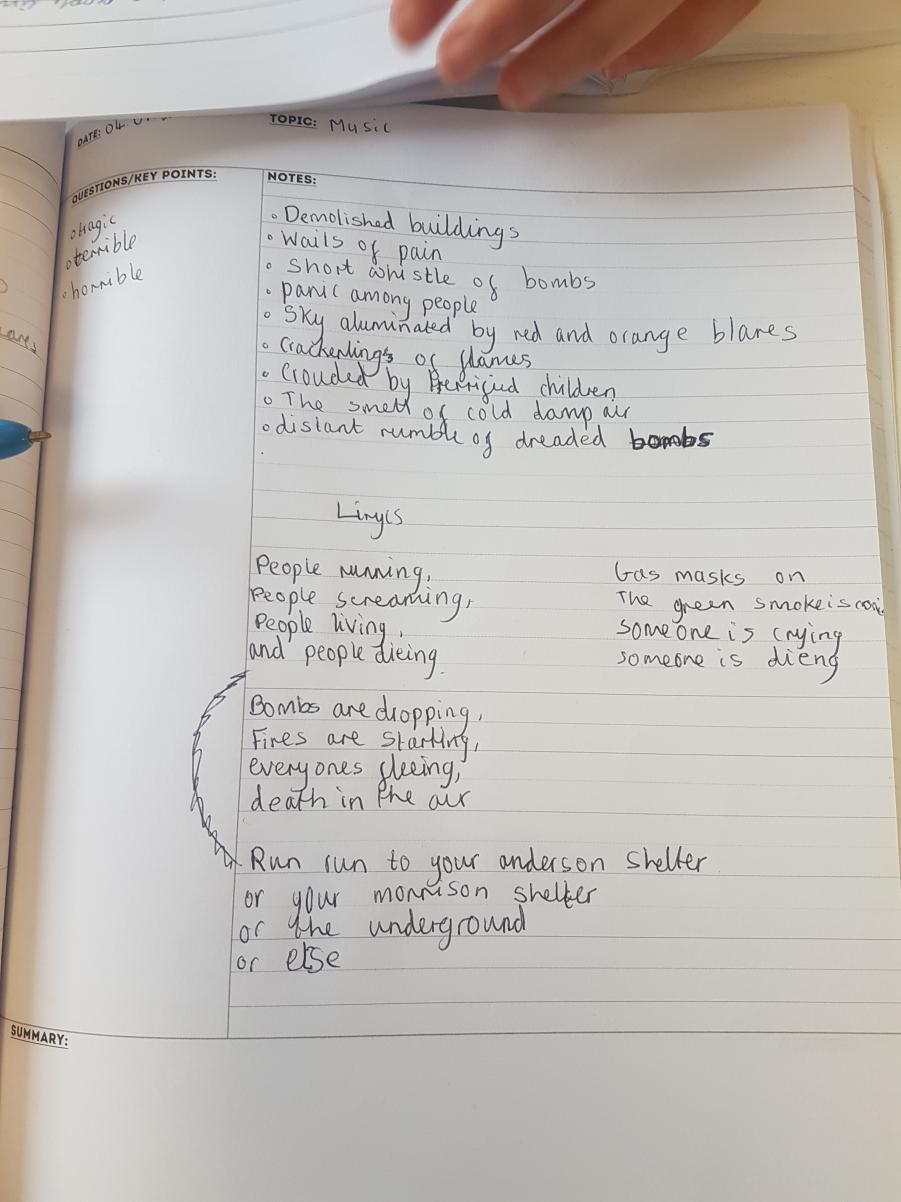 DATE: 04.
TOPIC: Music
QUESTIONS/KEY POINTS:
◦ tragic
◦ terrible
◦ horrible
NOTES:
◦ Demolished buildings
◦ Wails of pain
◦ Short whistle of bombs
◦ panic among people
◦ Sky aluminated by red and orange blares
◦ Crackerlings of flames
◦ Crouded by children
◦ The smell of cold damp air
◦ distant rumble of dreaded bombs
Lirycs
People running,
People screaming,
People living,
and people dieing.
Bombs are dropping,
Fires are starting,
everyones fleeing,
death in the air
Run run to your anderson shelter
or your morrison shelter
or the underground
or else
Gas masks on
The green smoke is
someone is crying
someone is dieng
SUMMARY: